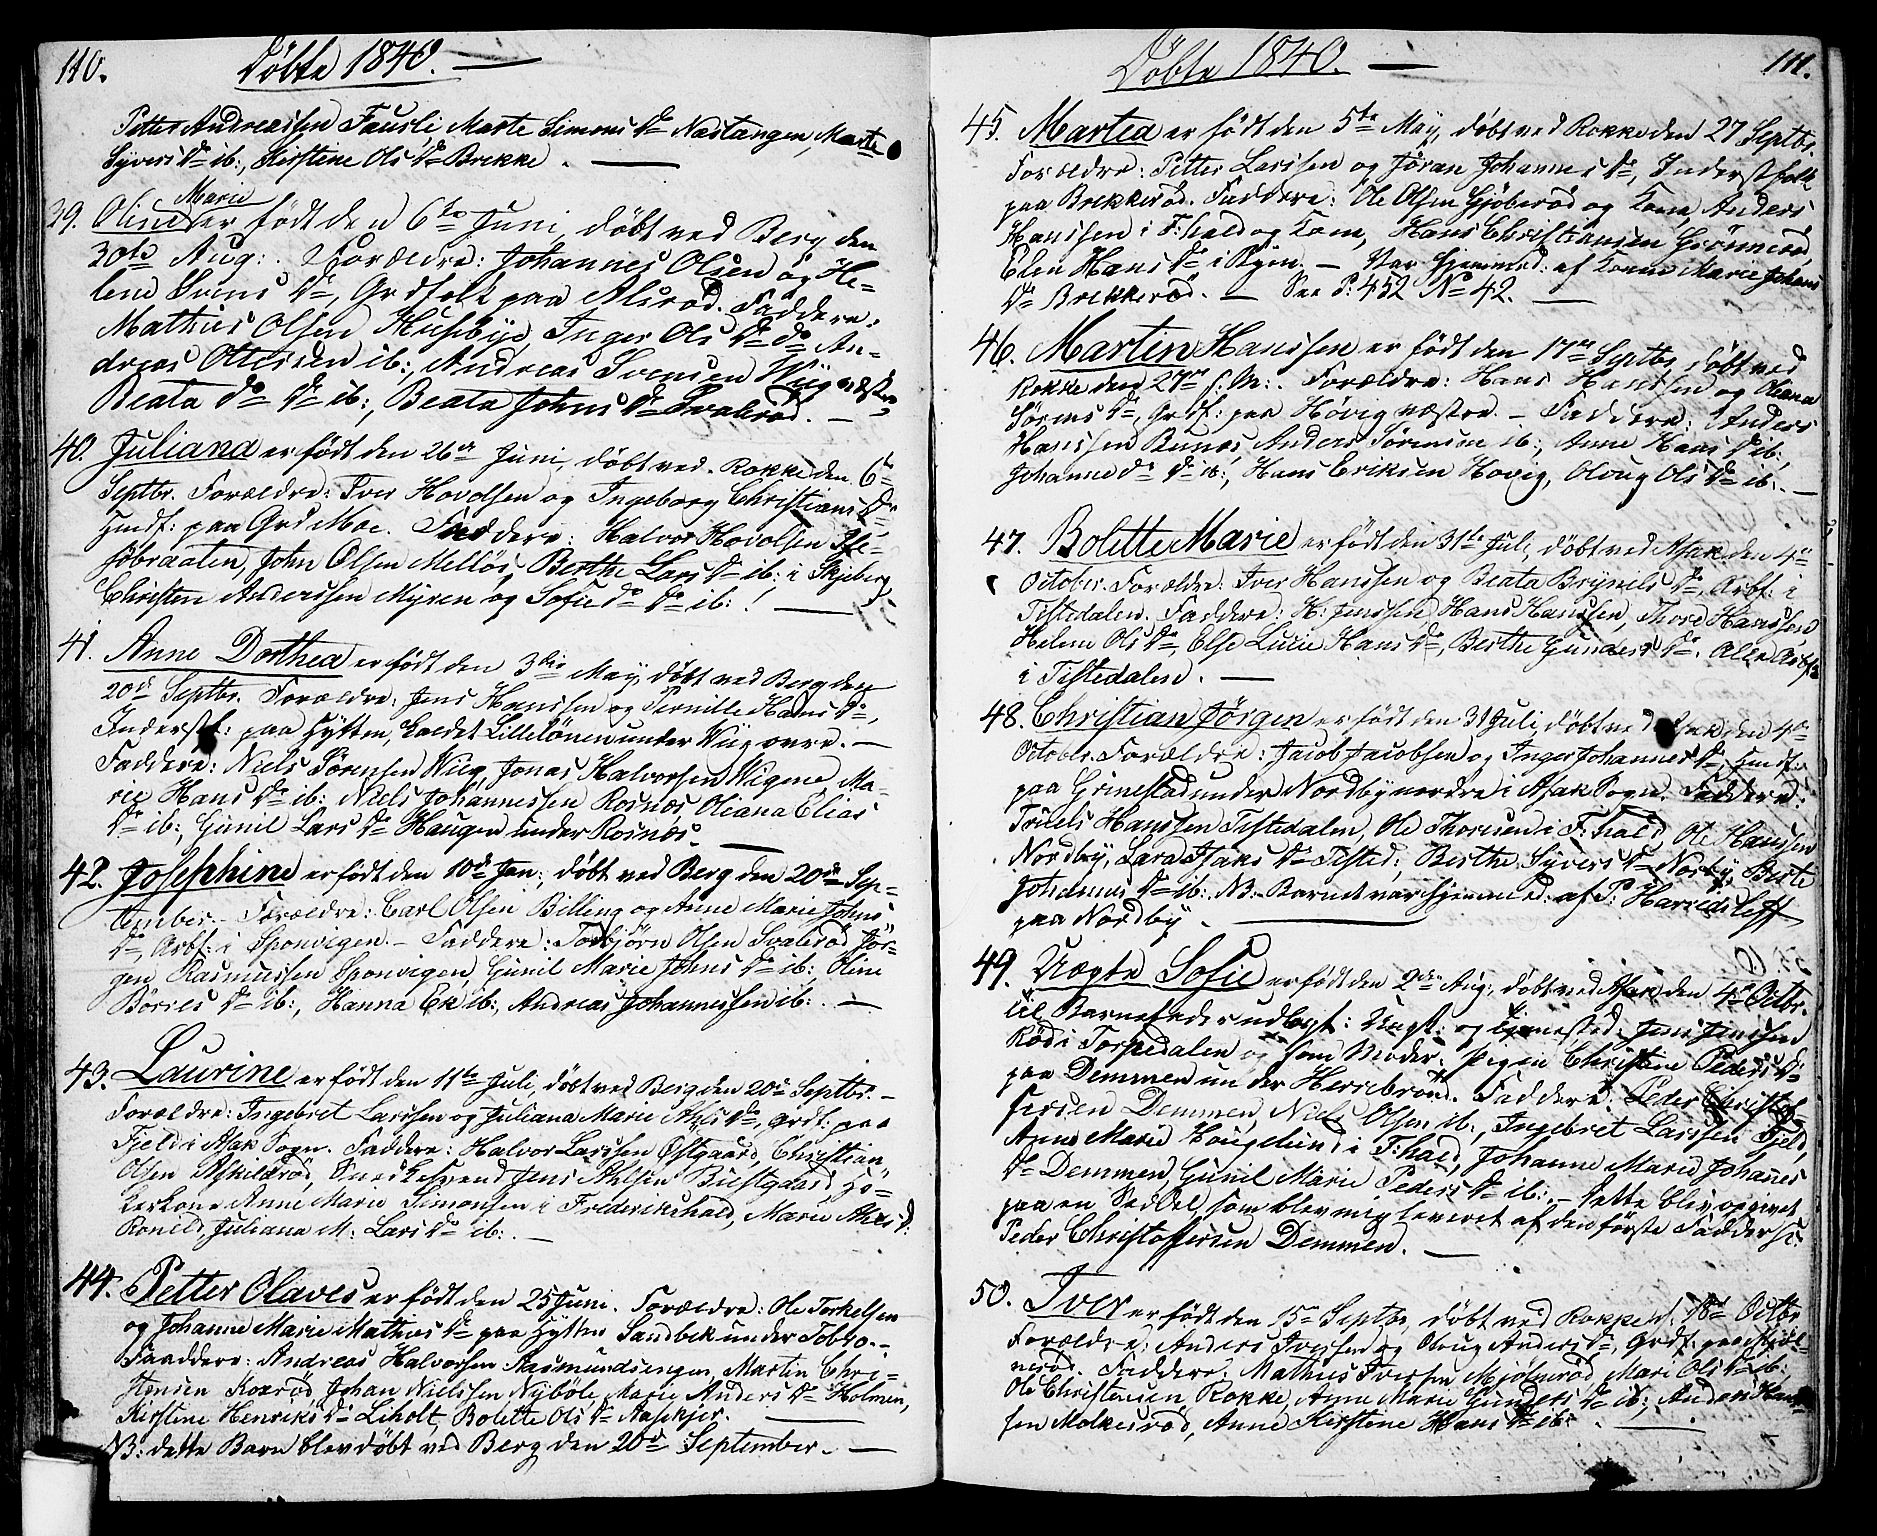 110. Döbte 1840. —
Petter Andreassen Fausli Marte Simons Dr Nästangen, Marte
Syvers Dr ib:, Kirstine Ols Dr Brekke. —
Marie
39. Oline er född den 6te Juni, döbt ved Berg den
30te Aug: . Forældre: Johannes Olsen og He-
lene Svens Dr, Grdfolk paa Alsröd. Faddere:
Mathias Olsen Husebye, Inger Ols Dr do An-
dreas Ottersen ib:, Andreas Svensen Wiig næstre,
Beata do Dr ib:, Beata Johns Dr Svaleröd. —
40. Juliana er född den 26de Juni, döbt ved Rokke den 6te
Septbr. Forældre: Iver Hovolsen og Ingeborg Christians Dr
Huusf: paa Grd Moe. Faddere: Halvor Hovolsen
braaten, John Olsen Mellös, Berthe Lars Dr ib: i Skjeberg,
Christen Anderssen Myren og Sofie do Dr ib: —
41. Anne Dorthea er född den 3die May, döbt ved Berg den
20de Septbr. Forældre: Jens Hanssen og Pernille Hans Dr,
Inderstf: paa Hytten, kaldet Lillelönen under Wiig övre. —
Faddere: Niels Sörensen Wiig, Jonas Halvorsen Wigene Ma-
rie Hans Dr ib: Niels Johannessen Rosnæs, Oliana Elias
Dr ib:, Gunil Lars Dr Haugen under Rosnæs. —
42. Josephine er född den 10de Jan:, döbt ved Berg den 20de Sep-
tember. Forældre: Carl Olsen Billing og Anne Marie Johns
Dr, Arbf: i Sponvigen. — Faddere: Torbjörn Olsen Svaleröd Jör-
gen Rasmussen Sponvigen, Gunil Marie Johns Dr ib:, Oline
Börres Dr ib:, Hanna Ek ib:, Andreas Johannessen ib: . —
43. Laurine er född den 11te Juli, döbt ved Berg den 20de Septbr. —
Forældre: Ingebret Larssen og Juliana Marie Ahls Dr, Grdf: paa
Fjeld i Asak Sogn. Faddere: Halvor Larssen Östgaard, Christian
Olsen Askeleröd, Jens Ahlsen Buestgaard, Hö-
kerkone Anne Marie Simonsen i Frederikshald, Marie Ahls Dr.
Ronild, Juliana M: Lars Dr ib: . —
44. Petter Olaves er född den 25 Juni. Forældre: Ole Torkelsen
og Johanne Marie Mathias Dr paa Hytten Sandbek under Torpo. —
Faddere: Andreas Halvorsen Aasmundsengen, Martin Chri-
stensen Koxröd, Johan Nielssen Nyböle, Marie Anders Dr Holmen,
Kirstine Henriks Dr Liholt, Bolette Ols Dr Aasekjer. —
NB: dette Barn blev döbt ved Berg den 20de September. —
Döbte 1840. — 111.
45. Martea er född den 5te May, döbt ved Rokke den 27 Septbr.
Forældre: Petter Larssen og Jöran Johannes Dr, Inderstfolk
paa Brekkeröd. Faddere: Ole Olsen Gjöberöd og Kone, Anders
Hanssen i F:hald og Kone, Hans Christiansen Grönneröd,
Elen Hans Dr i Byen. — Var hjemmed: af Konen Marie Johans
Dr Brekkeröd. — See P: 452 No 42. —
46. Martin Hanssen er född den 17de Septbr, döbt ved
Rokke den 27de s. M: . Forældre: Hans Hanssen og Oliana
Sörens Dr, Grdf: paa Hövig næstre. — Faddere: Anders
Hanssen Bunæs, Anders Sörensen ib:, Anne Hans Dr ib:,
Johanne do Dr ib:, Hans Eriksen Hovig, Oloug Ols Dr ib: . —
47. Bolette Marie er född den 31te Juli, döbt ved Asak den 4de
October. Forældre: Iver Hanssen og Beata Brynils Dr, Arbf: i
Tistedalen. Faddere: H: Jenssen, Hans Hanssen, Thord Hanssen
Helene Ols Dr, Else Lucie Hans Dr, Berthe Gunders Dr. Alle Arbf:
i Tistedalen. —
48. Christian Jörgen er född den 31 Juli, döbt ved Asak den 4de
October. Forældre: Jacob Jacobsen og Inger Johannes Dr, Huusf:
paa Grinestad under Nordby nordre i Asak Sogn. Faddere:
Tönnes Hanssen Tistedalen, Ole Thoresen i F:hald, Ole Hanssen
Nordby, Lara Isaks Dr Tisted, Berthe Syvers Dr Norby, Berte
Johannes Dr ib: NB: Barnet var hjemmed: af P: Harredsleff
paa Nordby. —
49. Uægte Sofie er född den 2den Aug:, döbt ved Asak den 4de Octbr.
Til Barnefader udlagt: Ungk: og tjenested. Jens Jenssen
Röd i Torpedalen og som Moder: Pigen Christine Peders Dr
paa Demmen under Herrebröd. Faddere: Peder Christof-
fersen Demmen, Niels Olsen ib:, Ingebret Larssen Fjeld,
Anne Marie Hougelund i F:hald, Johanne Marie Johanes
Dr Demmen, Gunil Marie Peders Dr ib: — Dette blev opgivet
paa en Seddel, som blev mig leveret af den förste Fadder H:
Peder Christoffersen Demmen. —
50. Iver er född den 15de Septbr, döbt ved Rokke d. 18de Octbr
Forældre: Anders Iverssen og Oloug Anders Dr, Grdf: paa Mjöl-
neröd. Faddere: Mathias Iverssen Mjölneröd, Mari Ols Dr ib:
Ole Christensen Rokke, Anne Marie Gunders Dr ib:, Anders Hans-
sen Molkeröd, Anne Kirstine Hans Dr ib: . —